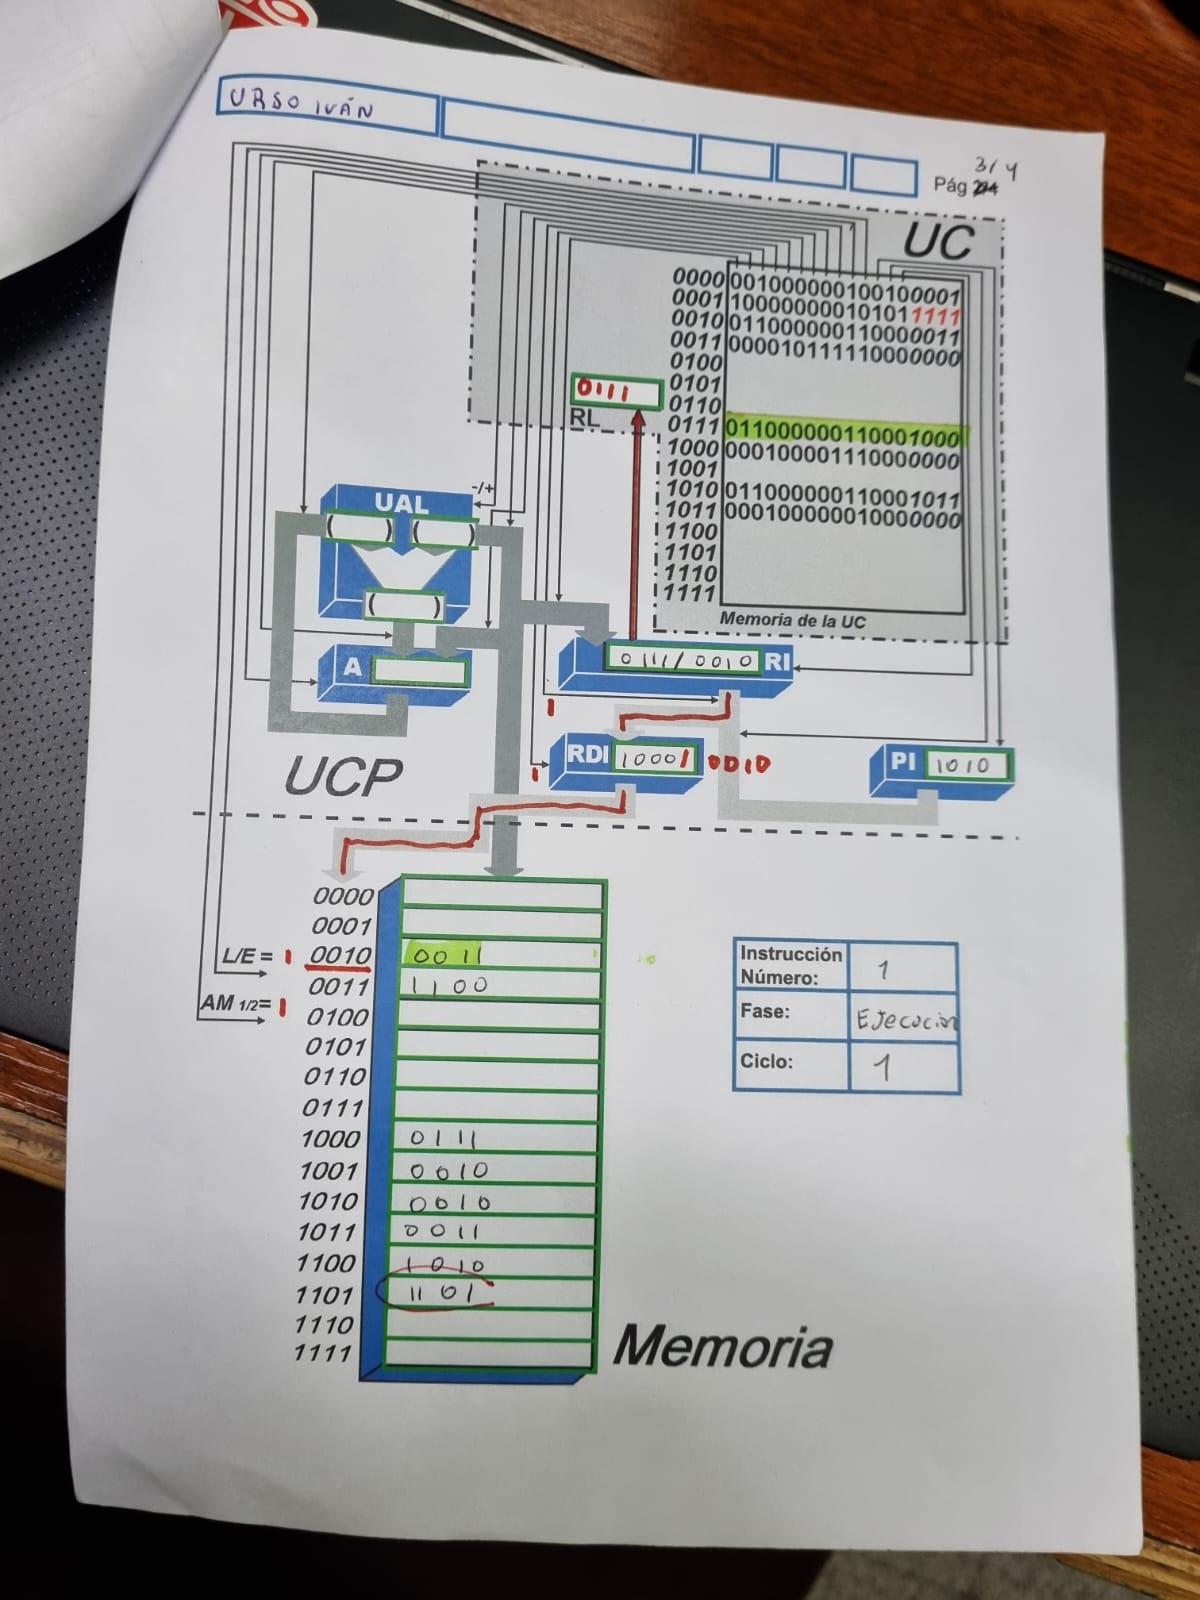 URSO IVÁN
3/4
Pág
UC
0000 00100000010010 0001
0001 10000000010101 1111
0010 01100000011000 0011
0011 00001011111000 0000
0100
0101
0110
0111 01100000011000 1000
1000 00010000111000 0000
1001
1010 01100000011000 1011
1011 00010000001000 0000
1100
1101
1110
1111
Memoria de la UC
0111
RL
-/+
UAL
( ) ( )
( )
A
0111/0010 RI
1
RDI 10001 0010
1
PI 1010
UCP
0000
0001
L/E = 1 0010 0011
0011 1100
AM 1/2= 1
0100
0101
0110
0111
1000 0111
1001 0010
1010 0010
1011 0011
1100 1010
1101 1101
1110
1111
Memoria
Instrucción Número: 1
Fase: Ejecucion
Ciclo: 1